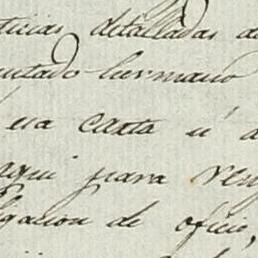 ticias detalladas de
putado hermano
esa carta ú o
aqui para ven
ligacion de oficio,